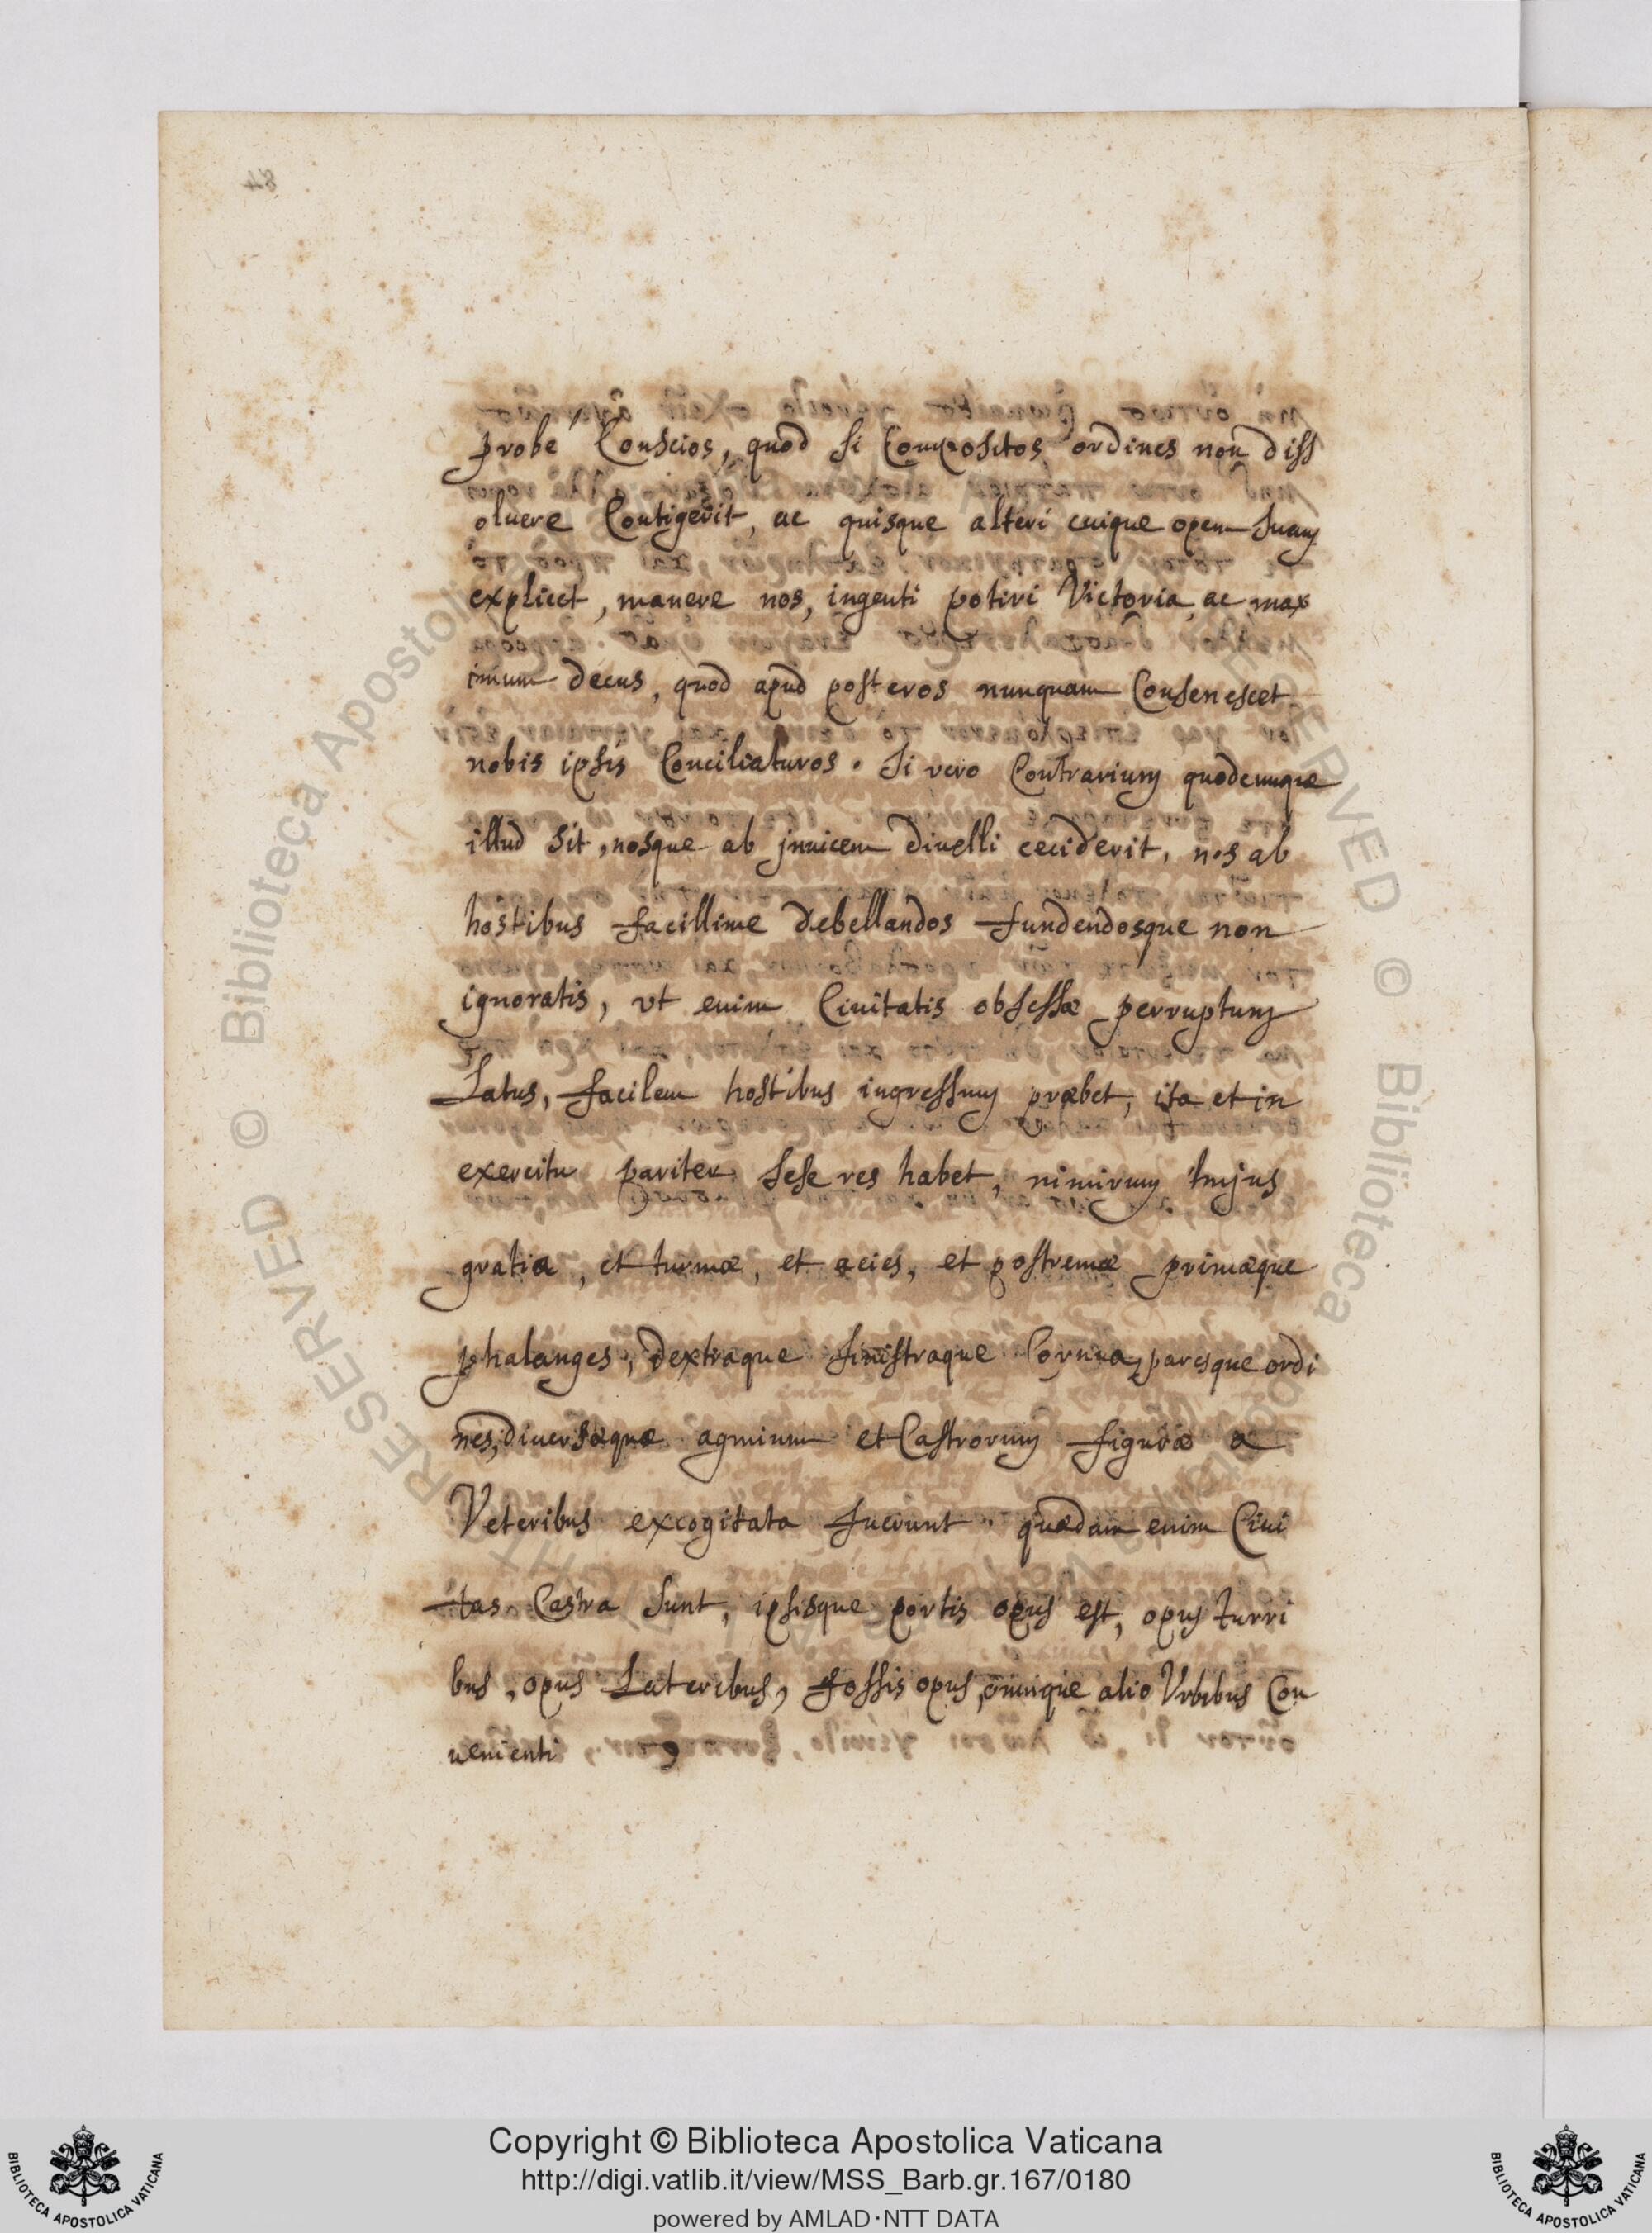 probe Conscios, quod si Compositos ordines non diss
oluere Contigerit, ac quisque alteri cuique opem suam
explicet, manere nos, ingenti potiri Victoria, ac max
imum decus, quod apud posteros nunquam Consenescet
nobis ipsis Conciliaturos. Si vero Contrarium quodcunque
illud sit, nosque ab jnuicem diuelli ceciderit, nos ab
hostibus facillime debellandos fundendosque non
ignoratis, vt enim Ciuitatis obsessæ perruptum
Latus, facilem hostibus ingressum præbet, ita et in
exercitu pariter sese res habet, nimirum hujus
gratia, et turmæ, et acies, et postremæ primæque
phalanges, dextraque sinistraque Cornua, paresque ordi
nes, diuersæque agminum et Castrorum figuræ a
Veteribus excogitata fuerunt. quædam enim Ciui
tas Castra sunt, ipsisque portis opus est, opus turri
bus, opus Lateribus, fossis opus, omnique alio Vrbibus Con
uenienti,
Copyright © Biblioteca Apostolica Vaticana
http://digi.vatlib.it/view/MSS_Barb.gr.167/0180
powered by AMLAD·NTT DATA